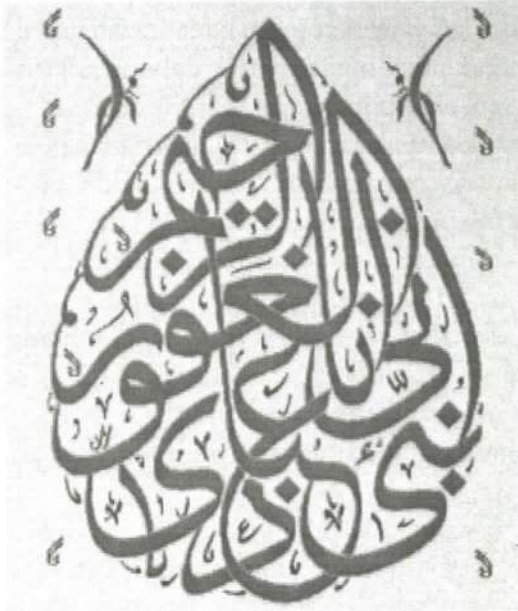 نَبِّئْ عِبَادِى أَنِّى أَنَا الْغَفُورُ الرَّحِيمُ